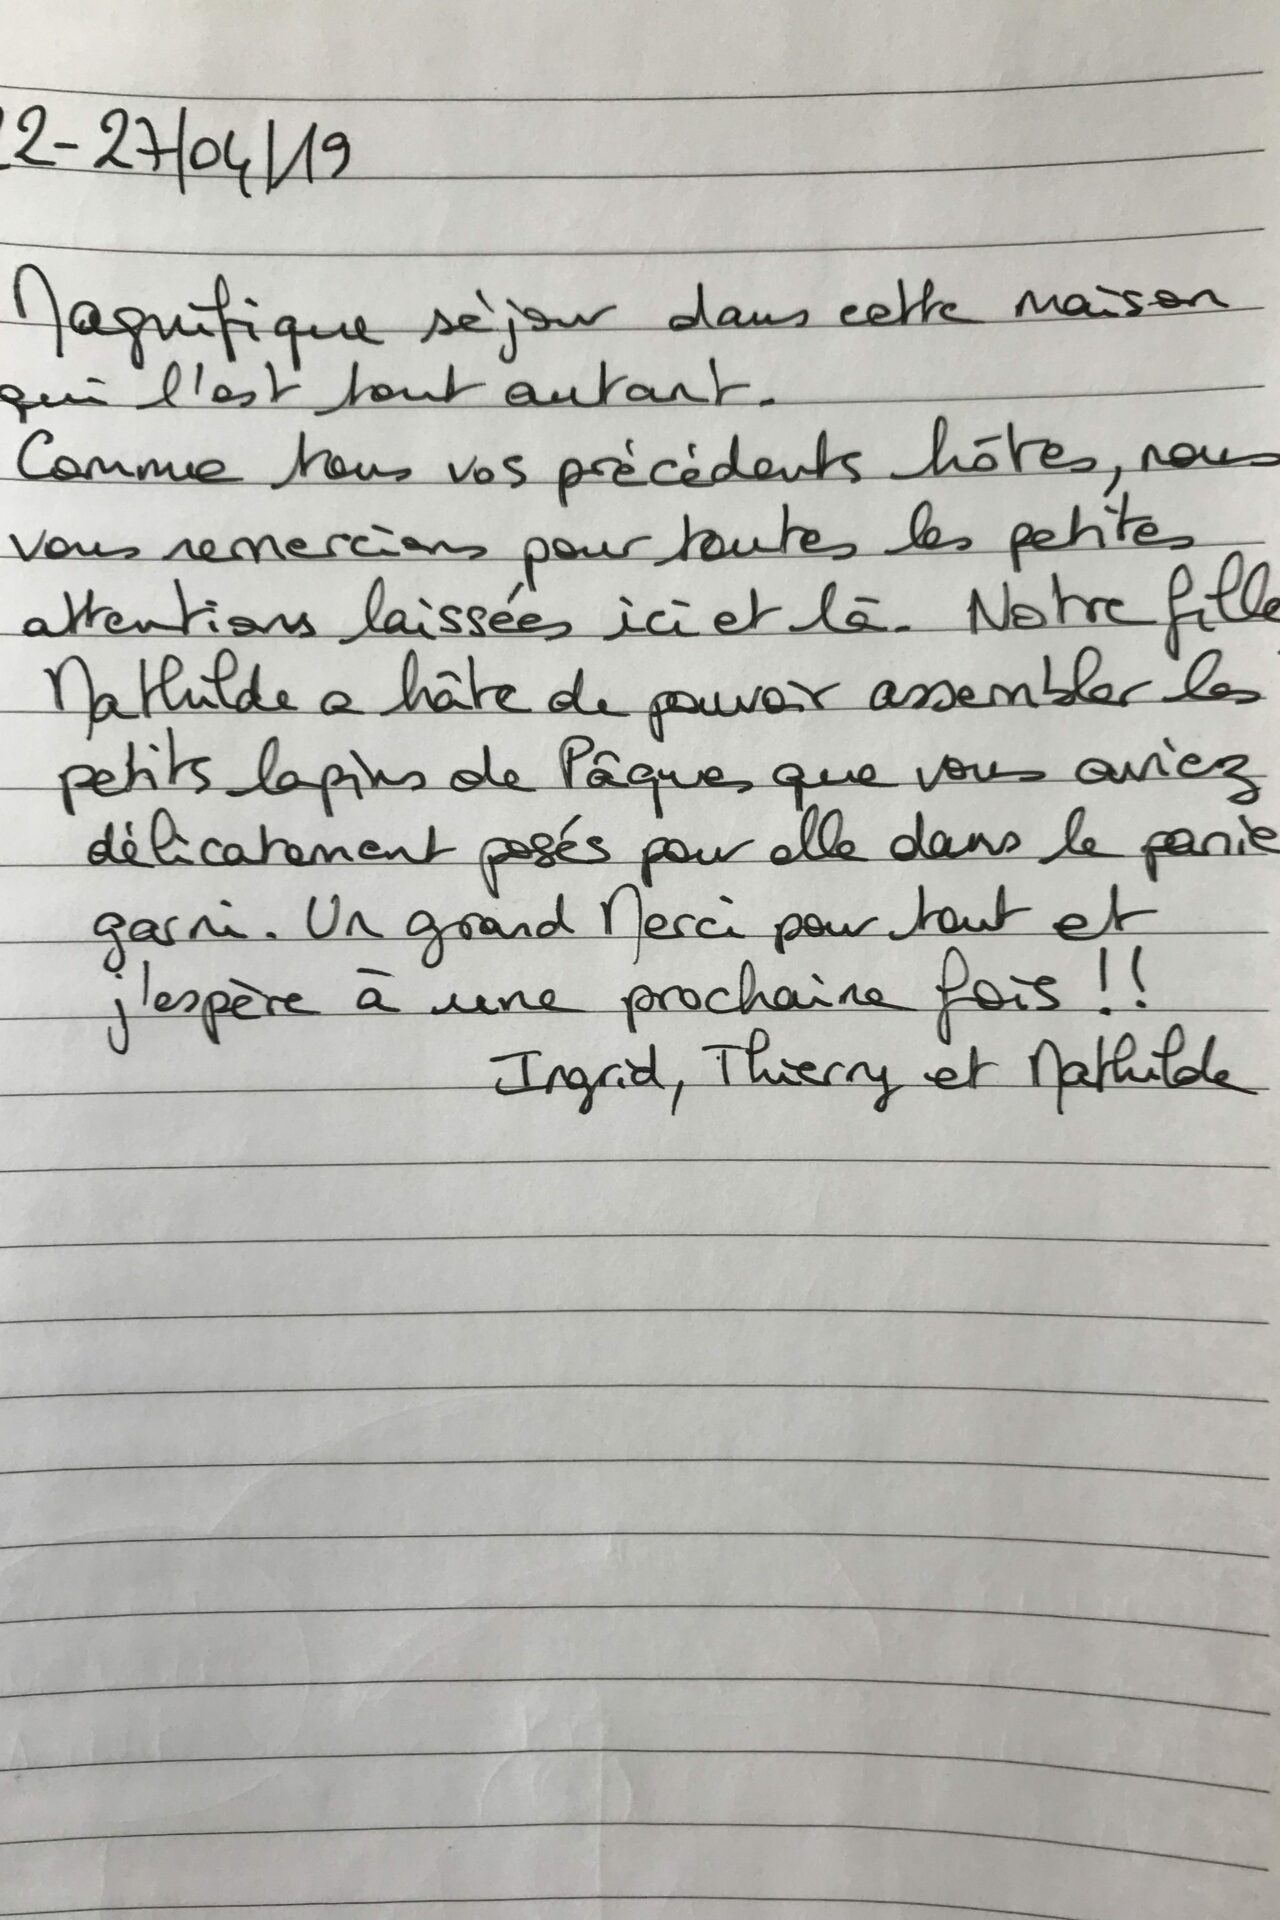 22-27/04/19
Magnifique séjour dans cette maison
qui l'est tout autant.
Comme tous vos précédents hôtes, nous
vous remercions pour toutes les petites
attentions laissées ici et là. Notre fille
Mathilde a hâte de pouvoir assembler les
petits lapins de Pâques que vous aviez
délicatement posés pour elle dans le panie
garni. Un grand Merci pour tout et
j'espère à une prochaine fois !!
Ingrid, Thierry et Mathilde